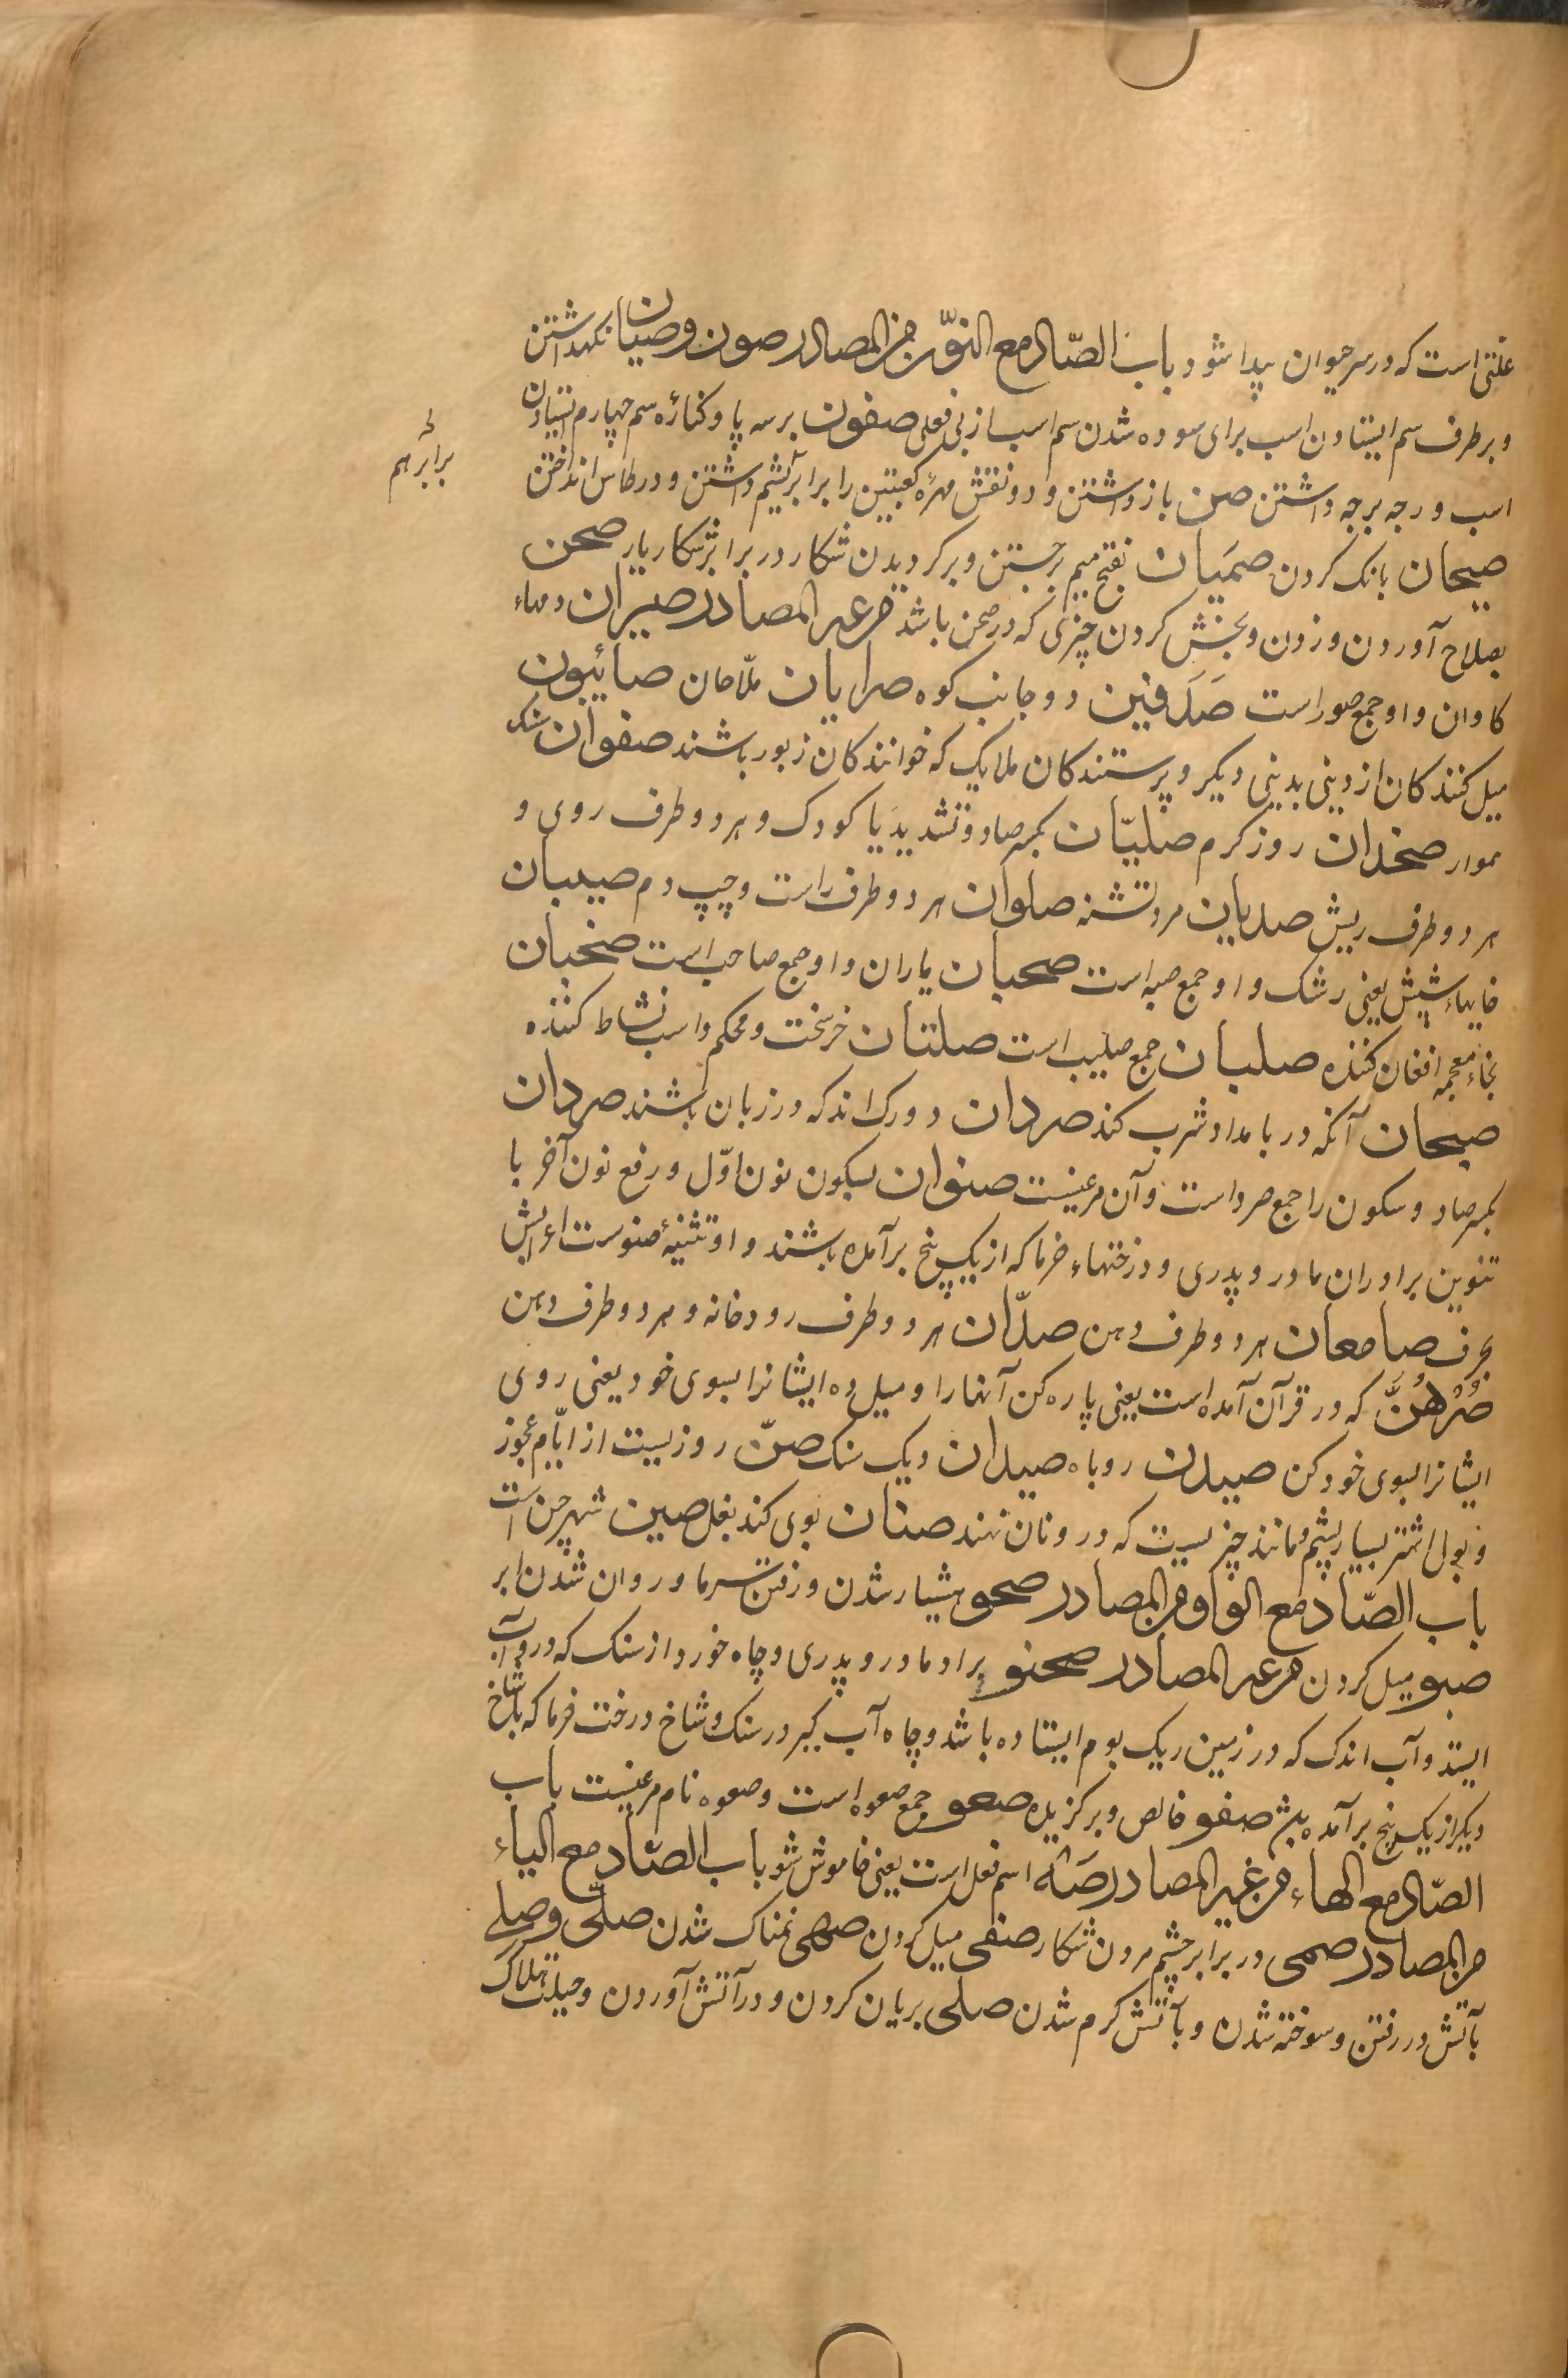 علتی است که در سر حیوان پیدا شود باب الصّاد مع النّون من المصادر صون وصیان نکهداشتن
و بر طرف سم ایستادن اسب برای سوده شدن سم اسب از بی نعلی صفون بر سه پا و کناره سم چهارم ایستادن
اسب و رجه برجه داشتن صن باز داشتن و دو نقش مهرهٔ کعبتین را برابر هم داشتن و در طاس انداختن
برابر هم
صیحان بانک کردن صمَیان بفتح میم برجستن و بر کردیدن شکار در برابر شکاریار صحن
بصلاح آوردن و زدن و بخش کردن چیزی که در صحن باشد من غیر المصادر صیران رمهاء
کاوان و او جمع صور است صَدَفین دو جانب کوه صراریان ملّاحان صائبون
میل کنندکان از دینی بدینی دیکر و پرستندکان ملایک که خوانندکان زبور باشند صفوان سنک
هموار صخدان روز کرم صلیّان بکسر صاد و تشدید یا کودک و هر دو طرف روی و
هر دو طرف ریش صدیان مرد تشنه صلوان هر دو طرف راست و چپ دم صیبان
خایهاء شپش یعنی رشک و او جمع صبه است صحبان یاران و او جمع صاحب است صخبان
بخاء معجمه افغان کننده صلبان جمع صلیب است صلتان خر سخت و محکم و اسب نشاط کننده
صبحان آنکه در بامداد شرب کند صردان دو رک اند که در زبان باشند صردان
بکسر صاد و سکون را جمع صرد است و آن مرغیست صنوان بسکون نون اوّل و رفع نون آخر با
تنوین برادران مادر و پدری و درختهاء خرما که از یک بیخ بر آمده باشند و او تثنیهٔ صنوست اعرابش
بحرف صامعان هر دو طرف دهن صدّان هر دو طرف رودخانه و هر دو طرف دهن
صُرْهُنَّ که در قرآن آمده است یعنی پاره کن آنها را و میل ده ایشانرا بسوی خود یعنی روی
ایشانرا بسوی خود کن صیدن روباه صیدان دیک سنک صنّ روزیست از ایّام عجوز
و بول اشتر بسیار پشم و مانند چیزیست که در و نان نهند صنان بوی کند بغل صین شهر چین است
باب الصّاد مع الواو من المصادر صحو هشیار شدن و رفتن سرما و روان شدن ابر
صبو میل کردن من غیر المصادر صحنو برادر مادر و پدری و چاه خورد از سنک که درو آب
ایستد و آب اندک که در زمین ریک بوم ایستاده باشد و چاه آب کیر در سنک و شاخ درخت خرما که با شاخ
دیکر از یک بیخ بر آمده باشد صفو خالص و برکزیده صعو جمع صعوه است و صعوه نام مرغیست باب
الصّاد مع الهاء من غیر المصادر صَهْ اسم فعل است یعنی خاموش شو باب الصّاد مع الیاء
من المصادر صمی در برابر چشم مردن شکار صغی میل کردن صهی نمناک شدن صلّی وصلی
بآتش در رفتن و سوخته شدن و بآتش کرم شدن صلی بریان کردن و در آتش آوردن و حیلت هلاک